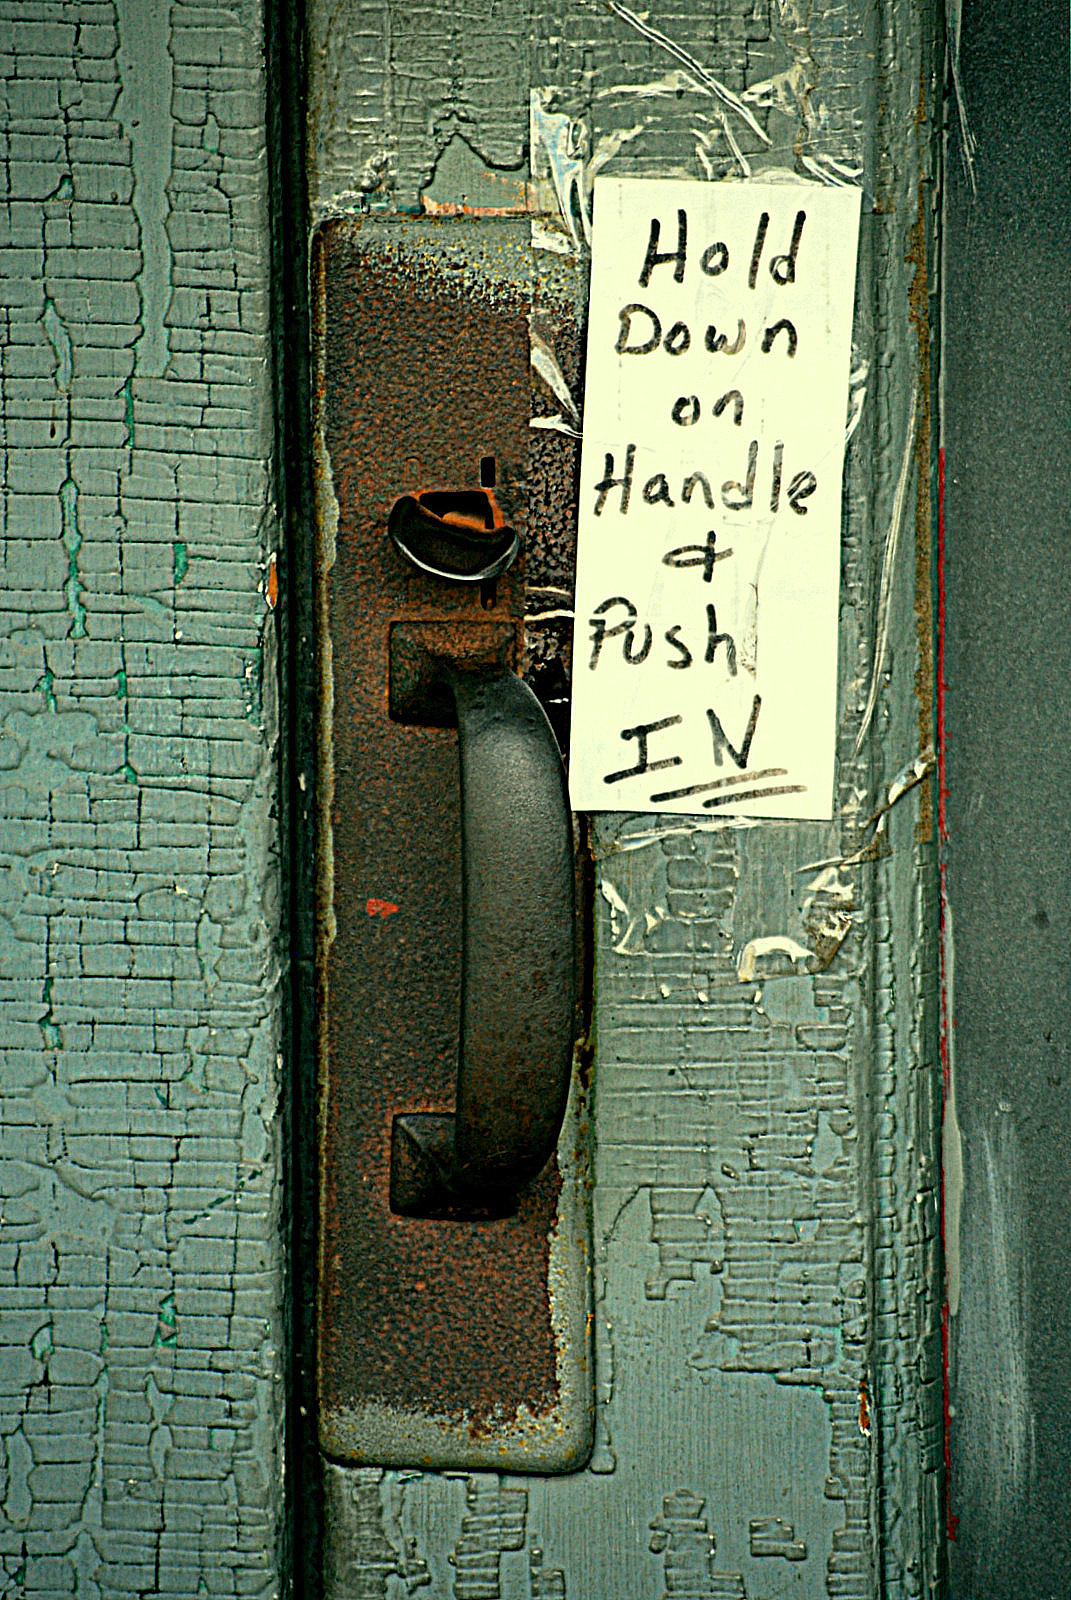 Hold
Down
on
Handle
&
Push
IN